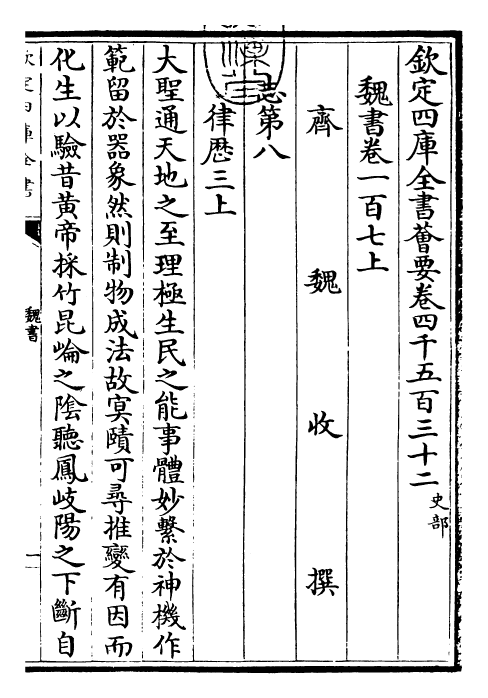 欽定四庫全書薈要卷四千五百三十二 史部
魏書卷一百七上
齊 魏 收 撰
志第八
律歷三上
大聖通天地之至理極生民之能事體妙繫於神機作
範留於器象然則制物成法故冥賾可尋推變有因而
化生以驗昔黄帝採竹昆崘之陰聽鳳岐陽之下斷自
欽定四庫全書
魏書
一